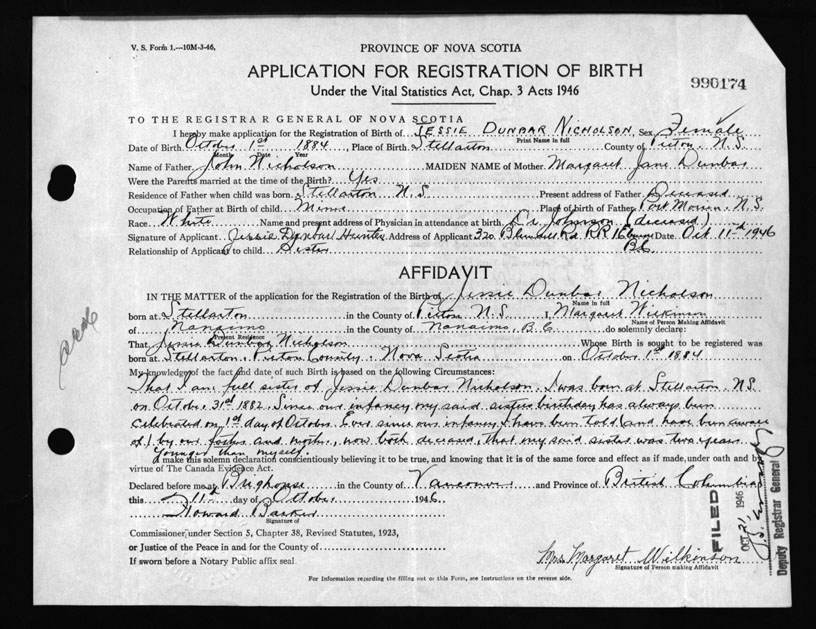 V. S. Form 1.—10M-3-46.
PROVINCE OF NOVA SCOTIA
APPLICATION FOR REGISTRATION OF BIRTH
990174
Under the Vital Statistics Act, Chap. 3 Acts 1946
TO THE REGISTRAR GENERAL OF NOVA SCOTIA
I hereby make application for the Registration of Birth of JESSIE DUNBAR NICHOLSON, Sex Female
Print Name in full
Date of Birth October 1st 1884, Place of Birth Stellarton County of Pictou, N.S.
Month Date Year
Name of Father John Nicholson MAIDEN NAME of Mother Margaret Jane Dunbar
Were the Parents married at the time of the Birth? Yes
Residence of Father when child was born Stellarton N.S. Present address of Father Deceased
Occupation of Father at Birth of child Place of birth of Father Port Morien, N.S.
Race White Name and present address of Physician in attendance at birth Dr Johnson (deceased)
Signature of Applicant Jessie Dunbar Hunter Address of Applicant 320 Rd RR1 Date Oct 11th 1946
Relationship of Applicant to child Sister B.C.
AFFIDAVIT
IN THE MATTER of the application for the Registration of the Birth of Jessie Dunbar Nicholson
Name in full
born at Stellarton in the County of Pictou N.S. I, Margaret
Name of Person Making Affidavit
of Nanaimo in the County of Nanaimo, B.C. do solemnly declare:
Present Residence
That Jessie Dunbar Nicholson Whose Birth is sought to be registered was
born at Stellarton, Pictou County, Nova Scotia on October 1st 1884
My knowledge of the fact and date of such Birth is based on the following Circumstances:
That I am full sister of Jessie Dunbar Nicholson. I was born at Stellarton N.S.
on October 31st 1882. Since our infancy my said sisters birthday has always been
celebrated on 1st day of October. Ever since our infancy I have been told (and have been aware
of) by our father and mother, now both deceased, that my said sister was two years
younger than myself.
I make this solemn declaration conscientiously believing it to be true, and knowing that it is of the same force and effect as if made under oath and by
virtue of The Canada Evidence Act.
Declared before me at Brighouse in the County of Vancouver and Province of British Columbia
this 11th day of October 1946
Howard Barker
Signature of
Commissioner under Section 5, Chapter 38, Revised Statutes, 1923,
or Justice of the Peace in and for the County of
If sworn before a Notary Public affix seal
Mrs. Margaret Wilkinson
Signature of Person making Affidavit
For Information regarding the filling out of this Form, see Instructions on the reverse side.
FILED
OCT 21 1946
Deputy Registrar General